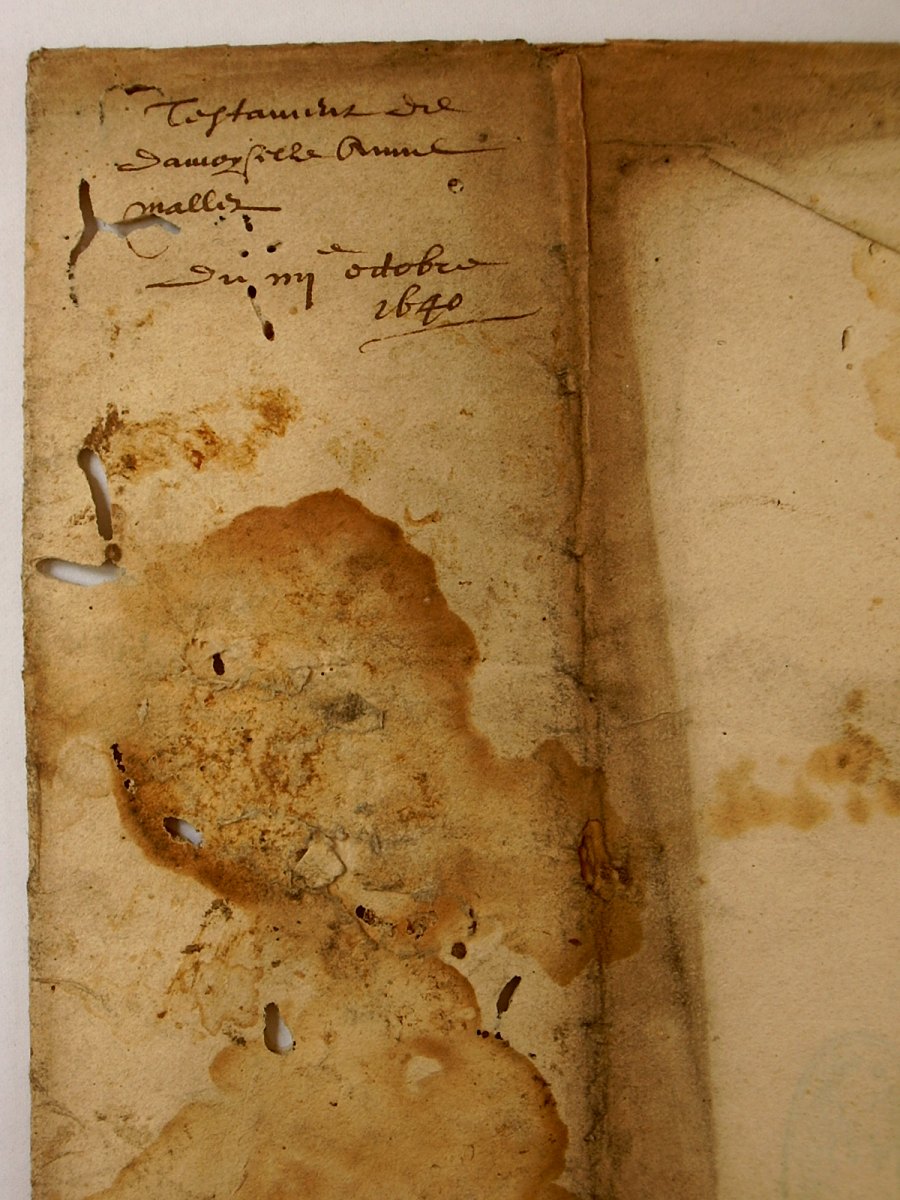 Testament de
damoyselle Anne
mallet
Du iiije octobre
1640